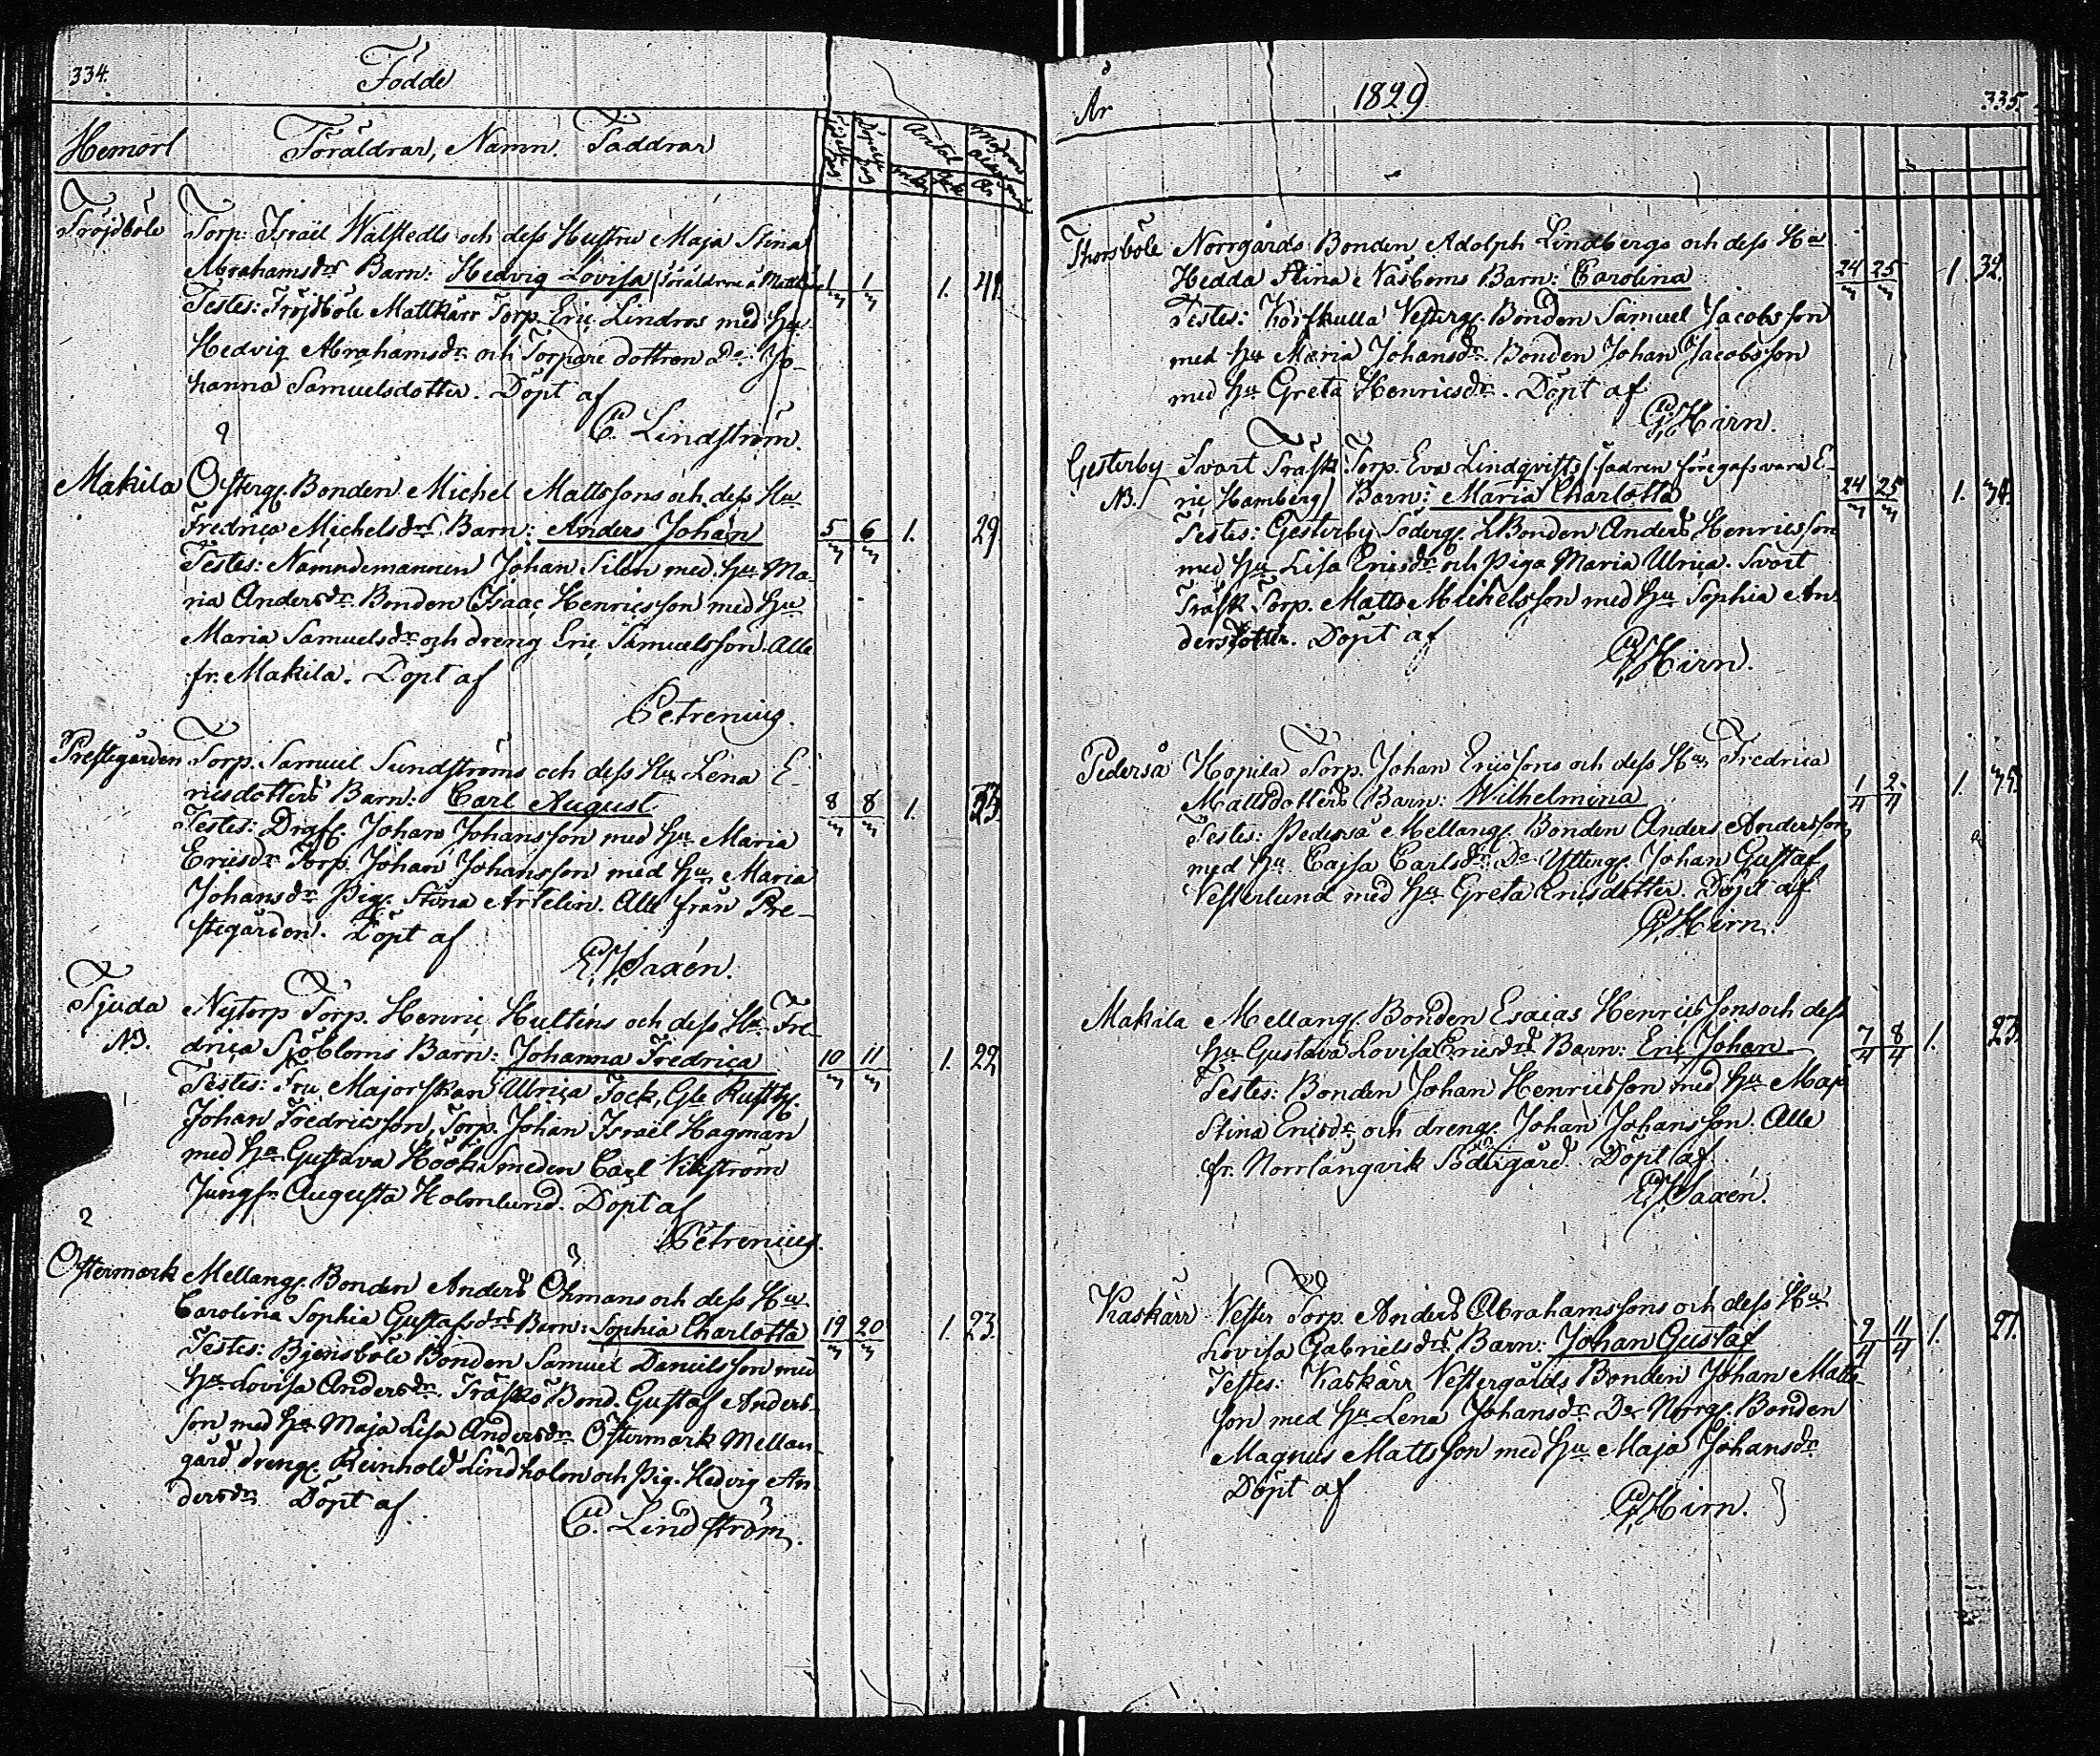 334.
Födde
Hemort
Föräldrar, Namn. Faddrar
Födelse dag
Döpelse dag
Antal
Modrens ålder
År
Fröjdböle
Torp. Israël Walstedts och dess Hustru Maja Stina
Abrahamsdrs Barn: Hedvig Lovisa (Föräldrarne a
1/3 1/3 1. 41.
Testes: Fröjdböle Mattkärr Torp. Eric Lindros med Hu
Hedvig Abrahamsdr och Torpare dottren Do Jo-
hanna Samuelsdotter. Döpt af
C. Lindström.
Makila
Österg. Bonden Michel Mattssons och dess Hu
Fredrica Michelsdrs Barn: Anders Johan
5/3 6/3 1. 29.
Testes: Nämndemannen Johan Silen med Hu Ma-
ria Andersdr Bonden Isaac Henricsson med Hu
Maria Samuelsdr och dreng Eric Samuelsson. Alle
fr. Makila. Döpt af
Petrenius.
Prestegården
Torp. Samuel Sundströms och dess Hu Lena E-
ricsdotters Barn: Carl August
8/3 8/3 1.
Testes: Drgf. Johan Johansson med Hu Maria
Ericsdr Torp. Johan Johansson med Hu Maria
Johansdr Pig. Stina Artelin. Alle från Pre-
stegården. Döpt af
Saxén.
Tjuda
NB.
Nytorp Torp. Henric Hultins och dess Hu Fre-
drica Sjöbloms Barn: Johanna Fredrica
10/3 11/3 1. 22
Testes: Fru Majorskan Ulrica Fock, Gle Rusth.
Johan Fredricsson, Torp. Johan Israël Hagman
med Hu Gustava Höök Smeden Carl Vikström
Jungfr Augusta Holmlund. Döpt af
Petrenius.
Östermark
Mellang. Bonden Anders Öhmans och dess Hu
Carolina Sophia Gustafsdrs Barn: Sophia Charlotta
19/3 20/3 1. 23.
Testes: Bjensböle Bonden Samuel Danielsson med
Hu Lovisa Andersdr. Träskö Bond. Gustaf Anders-
son med Hu Maja Lisa Andersdr Östermark Mellan-
gård dreng Reinhold Lindholm och Pig. Hedvig An-
dersdr Döpt af
C. Lindström.
År
1829
335.
Thorsböle
Norrgårds Bonden Adolph Lindbergs och dess Hu
Hedda Stina Näsboms Barn: Carolina
24/3 25/3 1. 32.
Testes: Kärfkulla Vesterg. Bonden Samuel Jacobsson
med Hu Maria Johansdr. Bonden Johan Jacobsson
med Hu Greta Henricsdr. Döpt af
Hirn.
Gesterby
NB.
Svart Träsk Torp. Eva Lindqvists (fadren föregafs vara E-
ric Hamberg) Barn: Maria Charlotta
24/3 25/3 1. 34.
Testes: Gesterby Söderg. L. Bonden Anders Henricsson
med Hu Lisa Ericsdr och Piga Maria Ulrica. Svart
Träsk Torp. Matts Michelsson med Hu Sophia An-
dersdotter. Döpt af
Hirn.
Pederså
Kopila Torp. Johan Ericssons och dess Hu Fredrica
Mattsdotters Barn: Wilhelmina
1/4 2/4 1.
Testes: Pederså Mellang. Bonden Anders Andersson
med Hu Cajsa Carlsdr. Do Ytterg. Johan Gustaf
Vesterlund med Hu Greta Ericsdotter. Döpt af
Hirn.
Makila
Mellang. Bonden Esaias Henricssons och dess
Hu Gustava Lovisa Ericsdrs Barn: Eric Johan
7/4 8/4 1. 23.
Testes: Bonden Johan Henricsson med Hu Maja
Stina Ericsdr och dreng. Johan Johansson. Alle
fr. Norrlångvik Södergård. Döpt af
Saxén.
Kaskärr
Vester Torp. Anders Abrahamssons och dess Hu
Lovisa Gabrielsdrs Barn: Johan Gustaf
9/4 11/4 1. 27.
Testes: Kaskärr Vestergårds Bonden Johan Matts-
son med Hu Lena Johansdr Do Norrg. Bonden
Magnus Mattsson med Hu Maja Johansdr
Döpt af
Hirn.